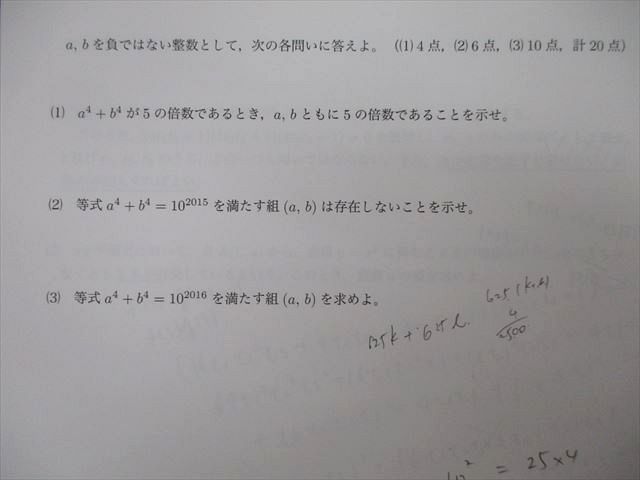 a, b を負ではない整数として，次の各問いに答えよ。 ((1) 4 点, (2) 6 点, (3) 10 点, 計 20 点)
(1) a⁴ + b⁴ が 5 の倍数であるとき，a, b ともに 5 の倍数であることを示せ。
(2) 等式 a⁴ + b⁴ = 10²⁰¹⁵ を満たす組 (a, b) は存在しないことを示せ。
(3) 等式 a⁴ + b⁴ = 10²⁰¹⁶ を満たす組 (a, b) を求めよ。
125k + 625l.
625
4
2500
= 25×4